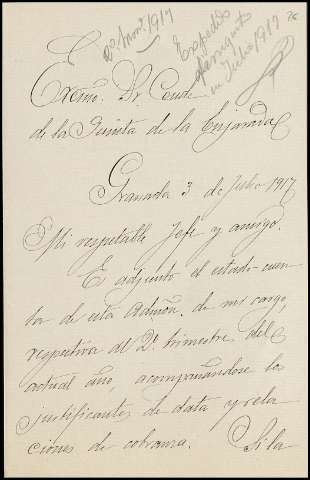 76
2º trimre 1917
Expedido
finiquito
en Julio 1917
Excmo. Sr. Conde
de la Quinta de la Enjarada
Granada 3 de Julio 1917
Mi respetable Jefe y amigo.
E adjunto el estado-cuen
ta de esta Admón. de mi cargo,
respectiva al 2º trimestre del
actual año, acompañándose los
justificantes de data y rela
ciones de cobranza. Si la